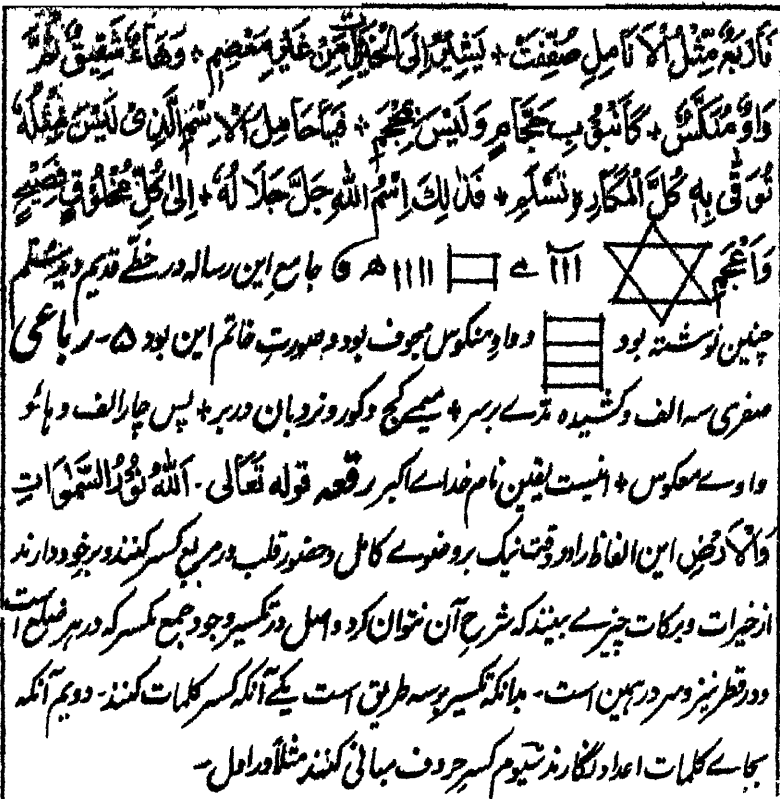 وَأَرْبَعٌ مِّثْلُ الْأَنَامِلِ صُفِّفَتْ + یَشِیْرُ اِلَی الْخَیْرَاتِ مِنْ غَیْرِ مِعْصَمٍ + وَهَاءٌ شَقِیْقٌ ثُمَّ
وَاوٌ مُنَكَّسٌ + كَأُنْبُوْبِ حَجَّامٍ وَلَیْسَ بِمِحْجَمٍ + فَیَا حَامِلَ الْاِسْمِ الَّذِیْ لَیْسَ مِثْلُهٗ
تُوَقّٰی بِهٖ كُلَّ الْمَكَارِهِ تَسْلَمِ + فَذٰلِكَ اِسْمُ اللّٰهِ جَلَّ جَلَالُهٗ + اِلٰی كُلِّ مَخْلُوْقٍ فَصِیْحٍ
وَاَعْجَمِ ااا م ۱۱۱۱ ھ و جامع این رساله در خطے قدیم دیدستلم
چنین نوشته بود و واو منکوس مجوف بود و بصورتِ خاتم این بود ۵ - رباعی
صفری سه الف و کشیده مدے بر سر + میمے کج و کور و نردبان در بر + پس چار الف و هائو
واوے معکوس + اینست یقین نام خداے اکبر رقعه قوله تعالی - اَللّٰهُ نُوْرُ السَّمٰوَاتِ
وَالْاَرْضِ این الفاظ را در وقت نیک بر وضوے کامل و حضور قلب در مربع کسر کنند و بر خود دارند
از خیرات و برکات چیزے بینند که شرح آن نتوان کرد و اصل در تکسیر وجود جمع مکسر که در هر ضلع است
و در قطر نیز و سر در همین است - بدانکه تکسیر بر سه طریق است یکے آنکه کسر کلمات کنند - دویم آنکه
بجاے کلمات اعداد نگارند شیوم کسر حروف مبانی کنند مثلاً در اول -